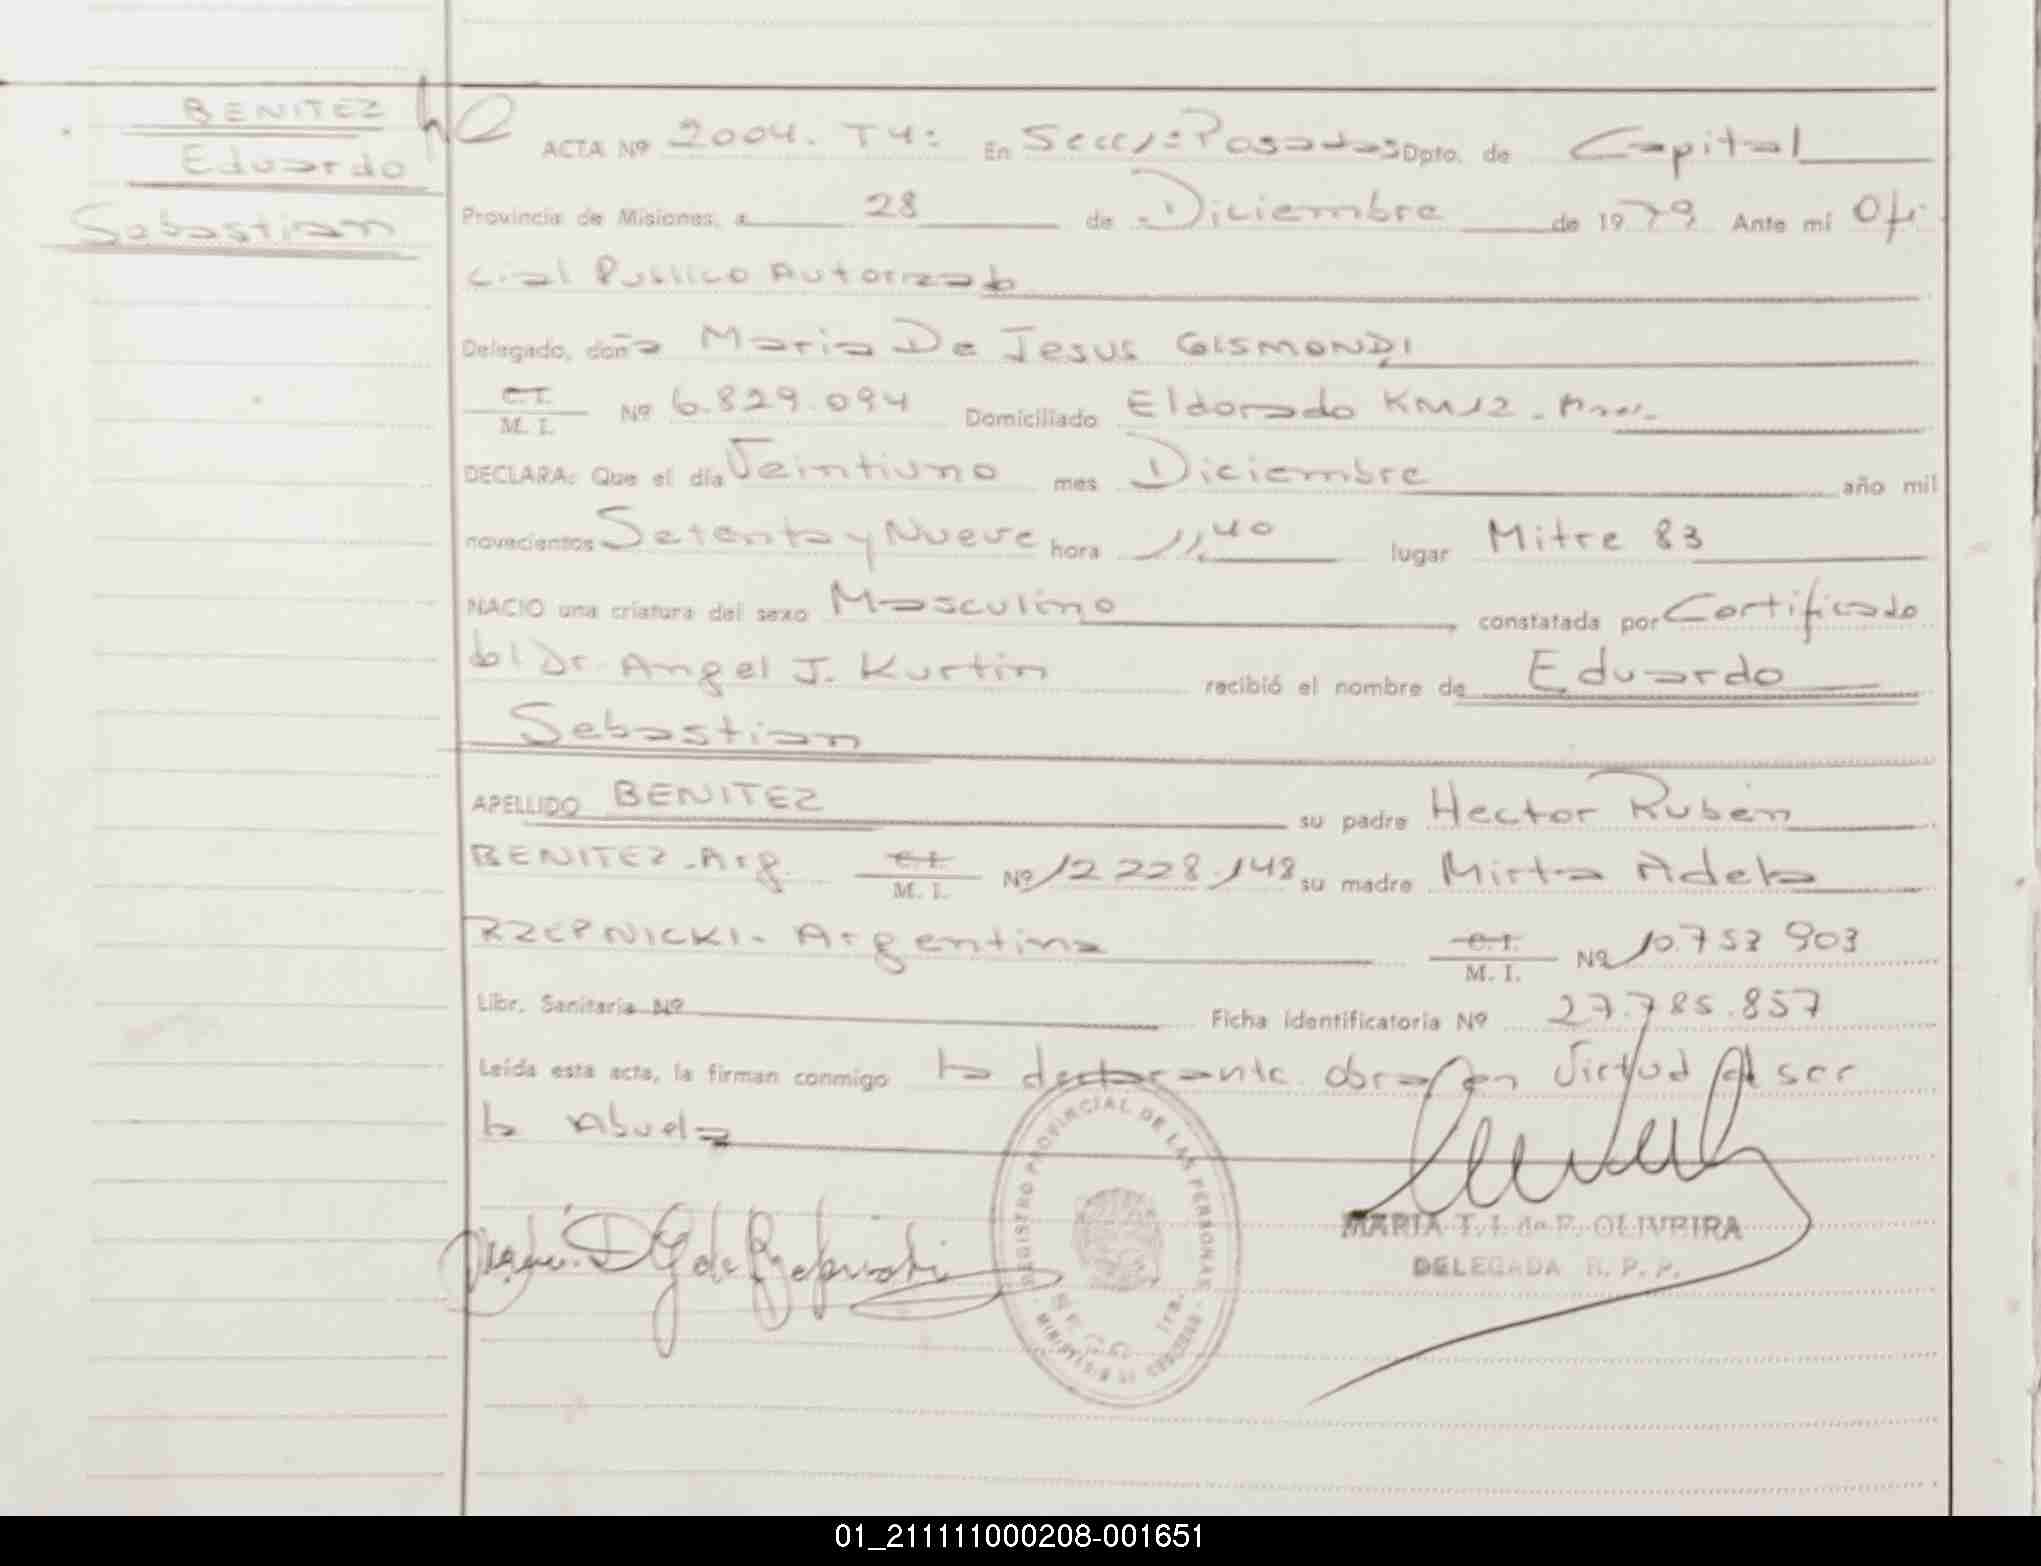 BENITEZ
Eduardo
Sebastian
ACTA Nº 2004. T4: En Secc 1ª Posadas Dpto. de Capital
Provincia de Misiones, a 28 de Diciembre de 1979 Ante mí Ofi
cial Publico Autorizado
Delegado, doña Maria De Jesus GISMONDI
C.I.
M. I. Nº 6.829.094 Domiciliado Eldorado KM12 -
DECLARA: Que el día Veintiuno mes Diciembre año mil
novecientos Setenta y Nueve hora 11,40 lugar Mitre 83
NACIO una criatura del sexo Masculino constatada por Certificado
del Dr. Angel J. Kurtin recibió el nombre de Eduardo
Sebastian
APELLIDO BENITEZ su padre Hector Rubén
BENITEZ - Arg. C.I.
M. I. Nº 12 228.148 su madre Mirta Adela
RZEPNICKI - Argentina C.I.
M. I. Nº 10.753 903
Libr. Sanitaria Nº Ficha identificatoria Nº 27.785.857
Leída esta acta, la firman conmigo la declarante obra en Virtud de ser
la Abuela
REGISTRO PROVINCIAL DE LAS PERSONAS
MARIA T. I. de F. OLIVEIRA
DELEGADA R. P. P.
01_211111000208-001651